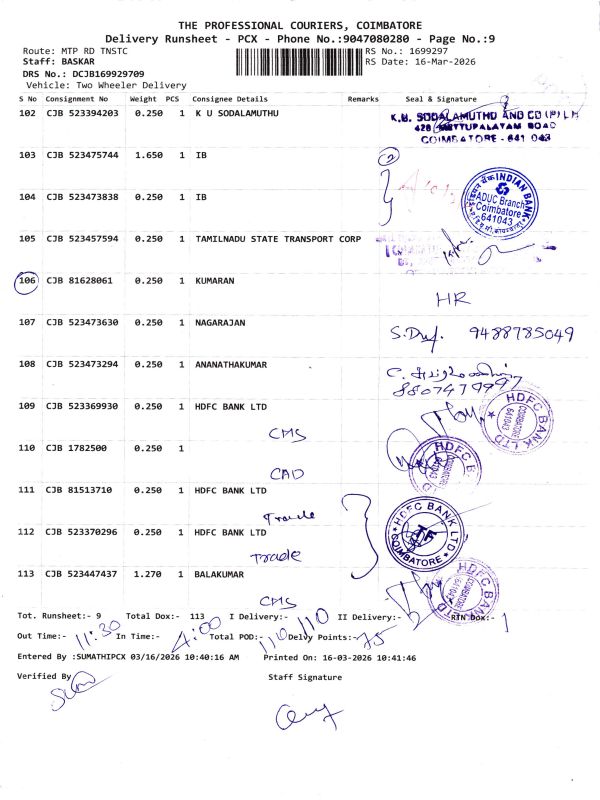 THE PROFESSIONAL COURIERS, COIMBATORE
Delivery Runsheet - PCX - Phone No.:9047080280 - Page No.:9
Route: MTP RD TNSTC RS No.: 1699297
Staff: BASKAR RS Date: 16-Mar-2026
DRS No.: DCJB169929709
Vehicle: Two Wheeler Delivery
S No Consignment No Weight PCS Consignee Details Remarks Seal & Signature
102 CJB 523394203 0.250 1 K U SODALAMUTHU
K.U. SODALAMUTHU AND CO (P) LTD
428 METTUPALAYAM ROAD
COIMBATORE - 641 043
103 CJB 523475744 1.650 1 IB
2
104 CJB 523473838 0.250 1 IB
INDIAN BANK
ADUC Branch
Coimbatore
641043
105 CJB 523457594 0.250 1 TAMILNADU STATE TRANSPORT CORP
106 CJB 81628061 0.250 1 KUMARAN
HR
107 CJB 523473630 0.250 1 NAGARAJAN
9488785049
108 CJB 523473294 0.250 1 ANANATHAKUMAR
8807479997
109 CJB 523369930 0.250 1 HDFC BANK LTD
CMS
HDFC BANK LTD
COIMBATORE
641043
110 CJB 1782500 0.250 1
CAD
111 CJB 81513710 0.250 1 HDFC BANK LTD
Trade
HDFC BANK LTD
COIMBATORE
112 CJB 523370296 0.250 1 HDFC BANK LTD
Trade
113 CJB 523447437 1.270 1 BALAKUMAR
CMS
Tot. Runsheet:- 9 Total Dox:- 113 I Delivery:- 110 II Delivery:- RTN Dox:- 1
Out Time:- 11:30 In Time:- 4:00 Total POD:- 110 Delvy Points:- 75
Entered By :SUMATHIPCX 03/16/2026 10:40:16 AM Printed On: 16-03-2026 10:41:46
Verified By Staff Signature